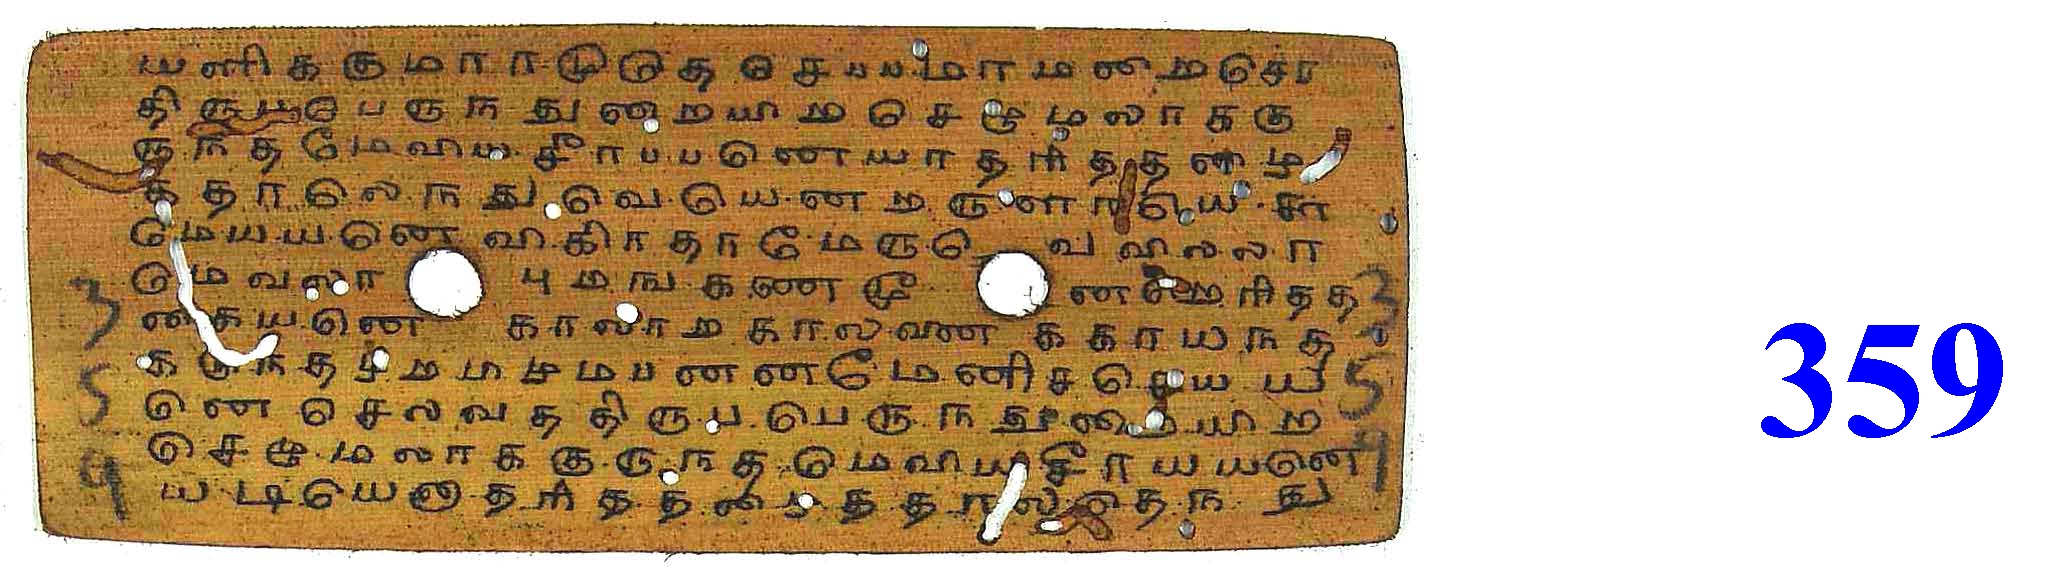 யளிககுமாராமுடுத செயயமாமணறசொ
திருபபெருநதுறையிற செழுமலாககு
ருநதமேவிய சீராபபனெயாதரிததழை
ததாலெநதுவெயெனறருளாயெ சா
மெயயனெ விகிாதாமேரு வெ வவிலலா
மெவலா புமஙகணமூ னறெரிதத
கையனெ காலாறகாலனை ககாயநத
கருநதழறறழமபனனமேனிசசெய ய
னெ செலவததிருபபெருநதுறையிற
செழுமலாககுருநதமெவிய சீராயயனெ
யடியெனாதரிததழைததாலதெநது
3 5 9
3 5 9
359